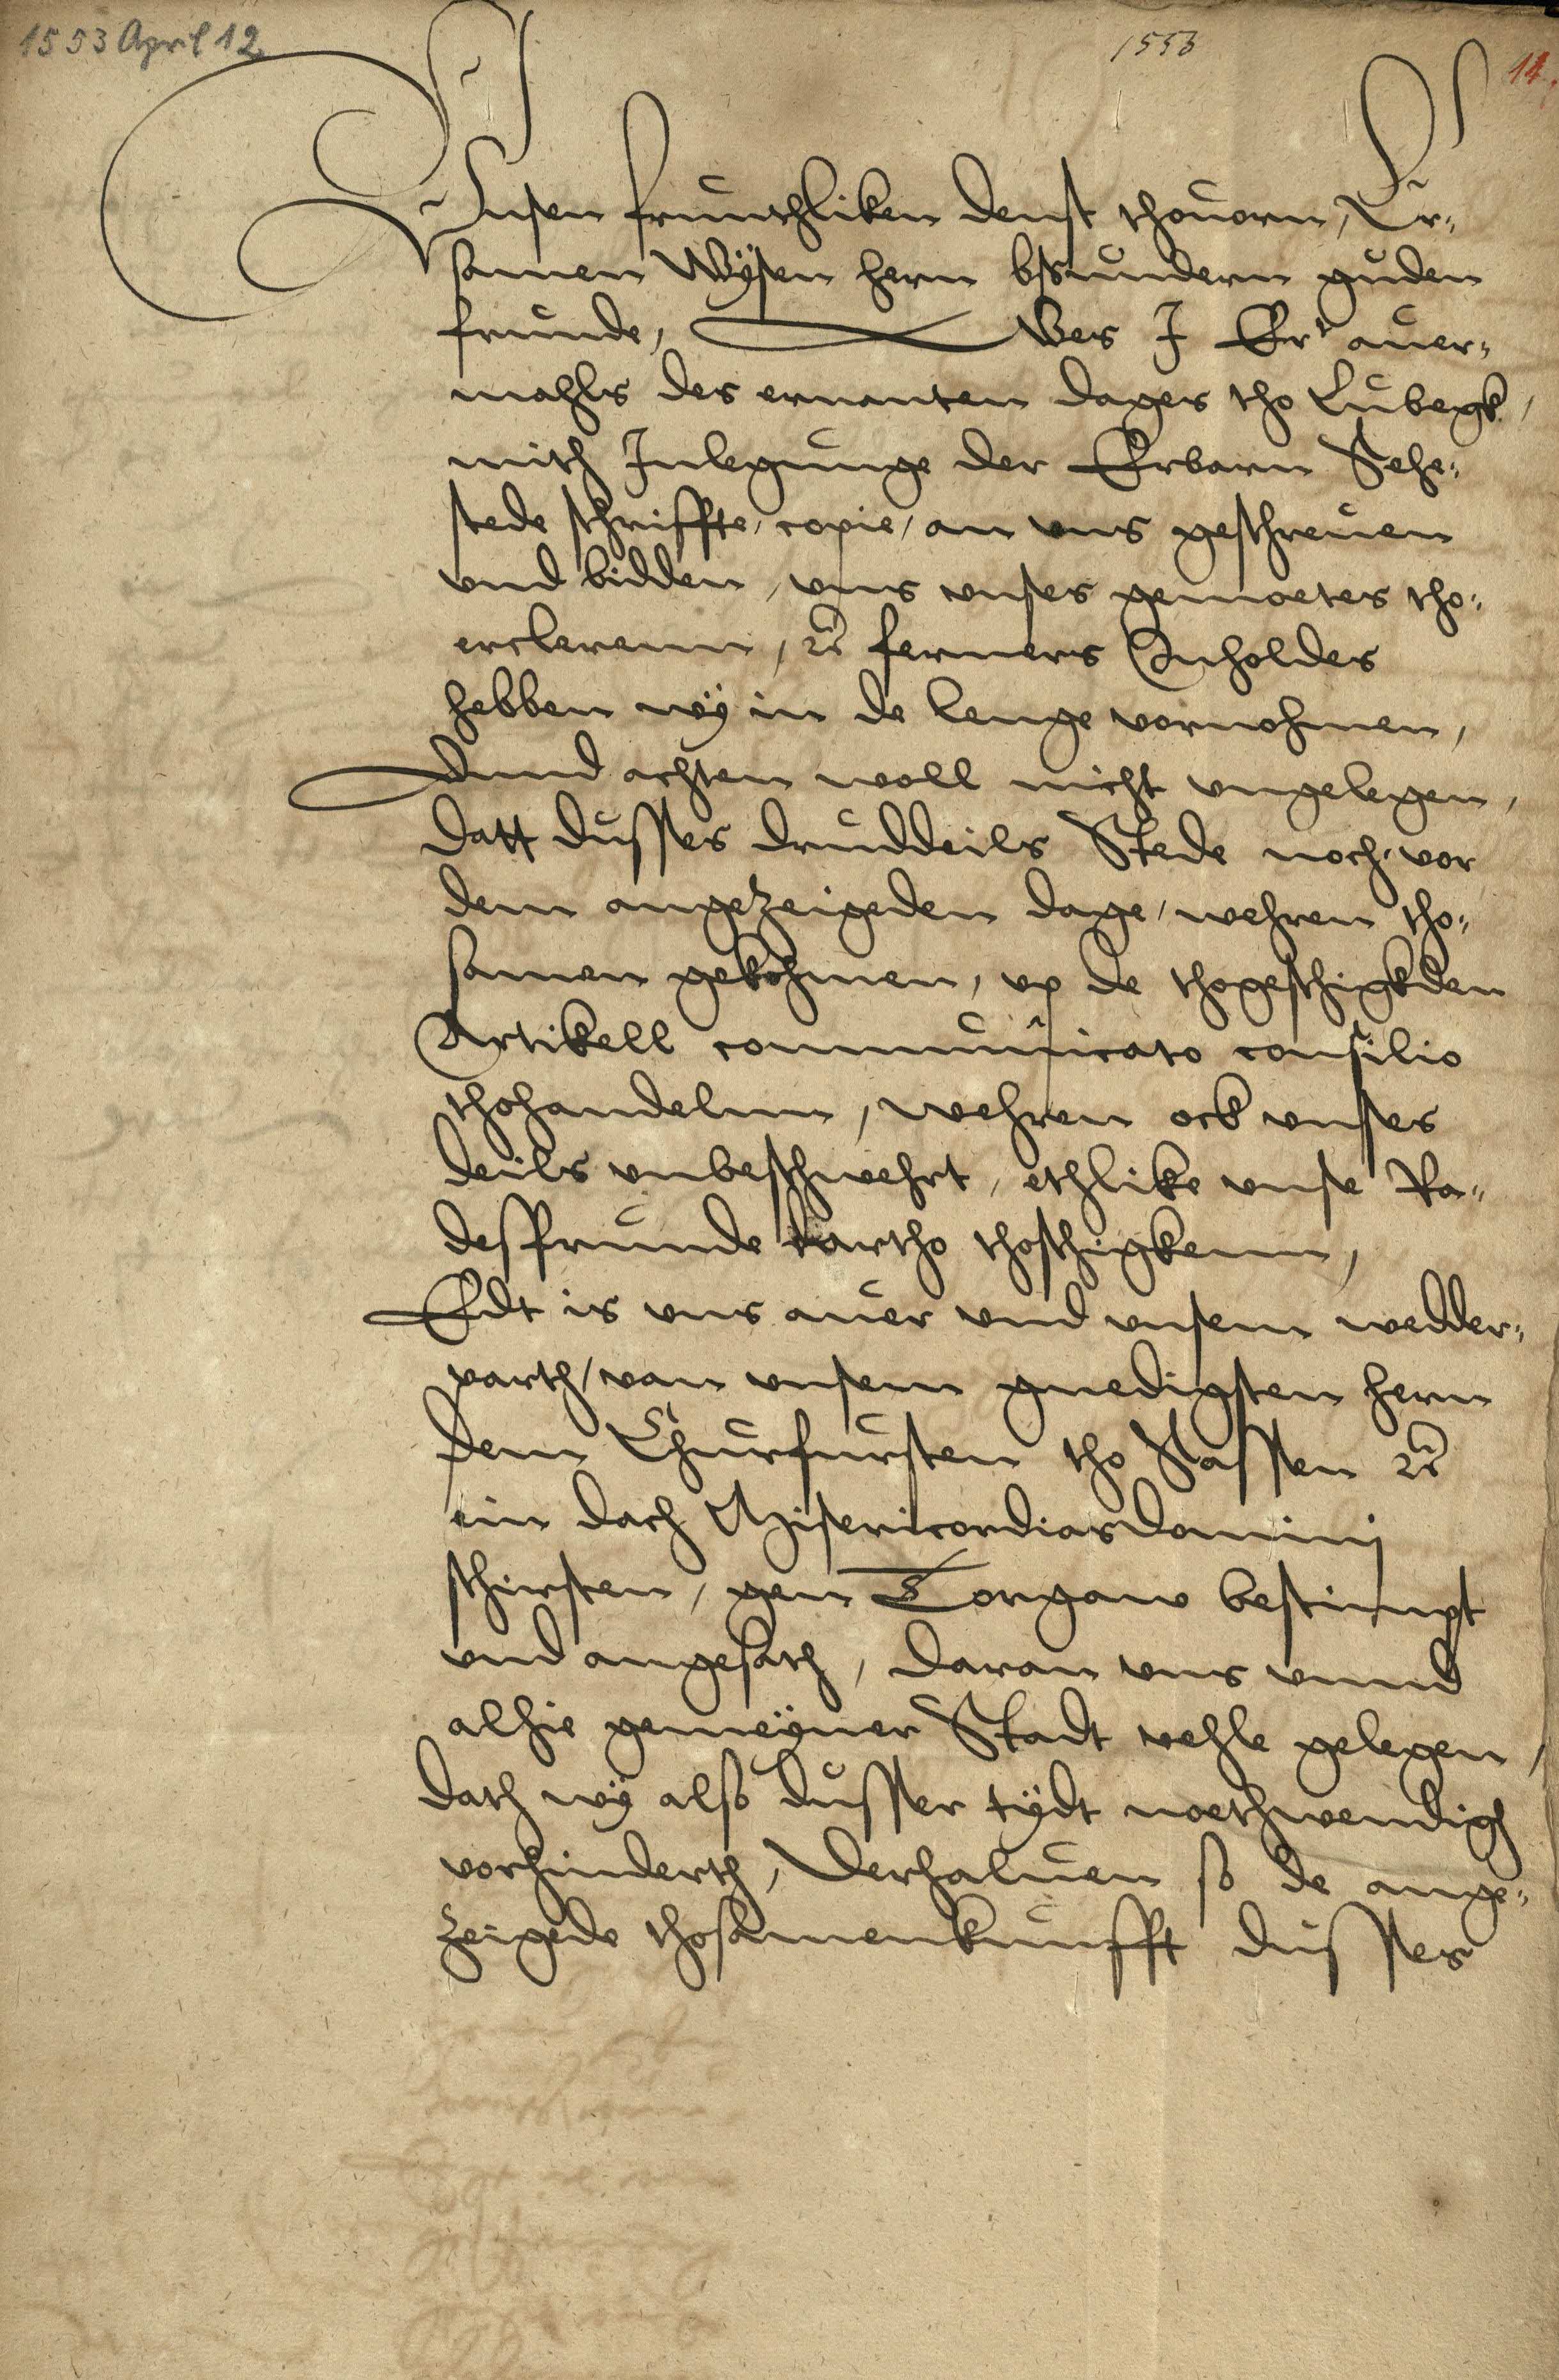 1553 April 12
1553
14.
Unsen frunthliken denst thouorn, Er-
samen Wÿsen hern bsundern guden
frunde, Wes J Er auer-
mahls des ernanten dages tho Lubegk,
mith Inlegunge der Erbarn Sehe-
stede schriffte, copie, an vns geschreuen
vnd bidden, vns vnses gemoetes tho-
erclerenn, rc ferners Inholdes
hebben wÿ in de lenge vornohmen,
Vnnd achten woll nicht vngelegen,
datt dusses druddeils Stede noch, vor
dem angezeigeden dage, wehren tho-
samen gekohmen, vp de thogeschigkden
Artikell communicato consilio
thohandelnn, wehren ock vnses
deils vnbeschwehrt, ethlike vnse Ra-
desfrunde dartho thoschigkenn,
Edt is vns auer vnd vnsem wedder-
parth, van vnsem gnedigsten hern
dem Churfursten tho Sassen rc
ein dach Misericordias domini
schirsten, gen Torgaw bestimpt
vnd angesath, daran vns vnnd
alhie gemeÿner Stadt vehle gelegen,
dath wÿ also dusser tÿdt noethwendig
vorhinderth, Derhaluen so de ange-
zeigede thosamenkunfft dusses